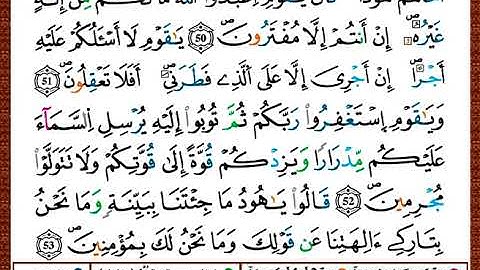 غَيْرُهُۥٓ إِنْ أَنتُمْ إِلَّا مُفْتَرُونَ 50 يَٰقَوْمِ لَآ أَسْـَٔلُكُمْ عَلَيْهِ
أَجْراً إِنْ أَجْرِىَ إِلَّا عَلَى ٱلَّذِے فَطَرَنِىٓ أَفَلَا تَعْقِلُونَ 51
وَيَٰقَوْمِ ٱسْتَغْفِرُوا۟ رَبَّكُمْ ثُمَّ تُوبُوٓا۟ إِلَيْهِ يُرْسِلِ ٱلسَّمَآءَ
عَلَيْكُم مِّدْرَاراً وَيَزِدْكُمْ قُوَّةً إِلَىٰ قُوَّتِكُمْ وَلَا تَتَوَلَّوْا۟
مُجْرِمِينَ 52 قَالُوا۟ يَٰهُودُ مَا جِئْتَنَا بِبَيِّنَةٍ وَمَا نَحْنُ
بِتَارِكِىٓ ءَالِهَتِنَا عَن قَوْلِكَ وَمَا نَحْنُ لَكَ بِمُؤْمِنِينَ 53